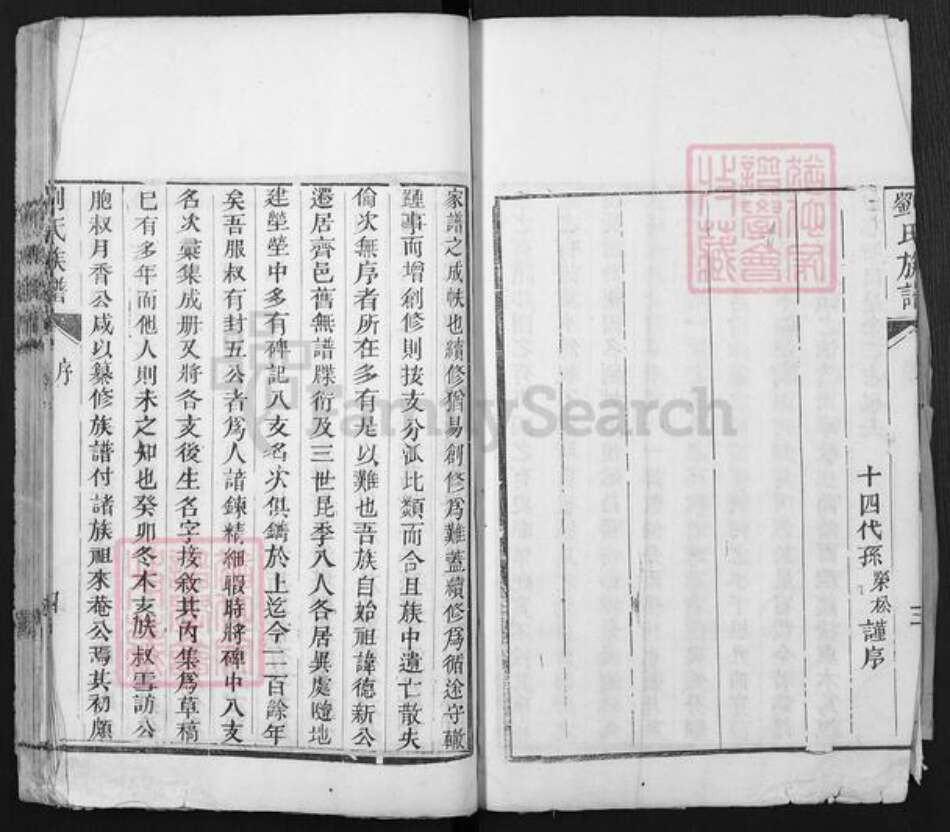 劉氏族譜
三
十四代孫榮松謹序
家譜之成帙也續修猶易創修為難蓋續修為循途守轍
踵事而增創修則按支分派比類而合且族中遺亡散失
倫次無序者所在多有是以難也吾族自始祖諱德新公
遷居齊邑舊無譜牒衍及三世昆季八人各居異處隨地
建塋塋中多有碑記八支名次俱鐫於上迄今二百餘年
矣吾服叔有封五公者為人諳鍊精細暇時將碑中八支
名次彙集成册又將各支後生名字接敘其內集為草稿
已有多年而他人則未之知也癸卯冬本支族叔雪訪公
胞叔月香公咸以纂修族譜付諸族祖來菴公焉其初願
劉氏族譜
序
四
FamilySearch